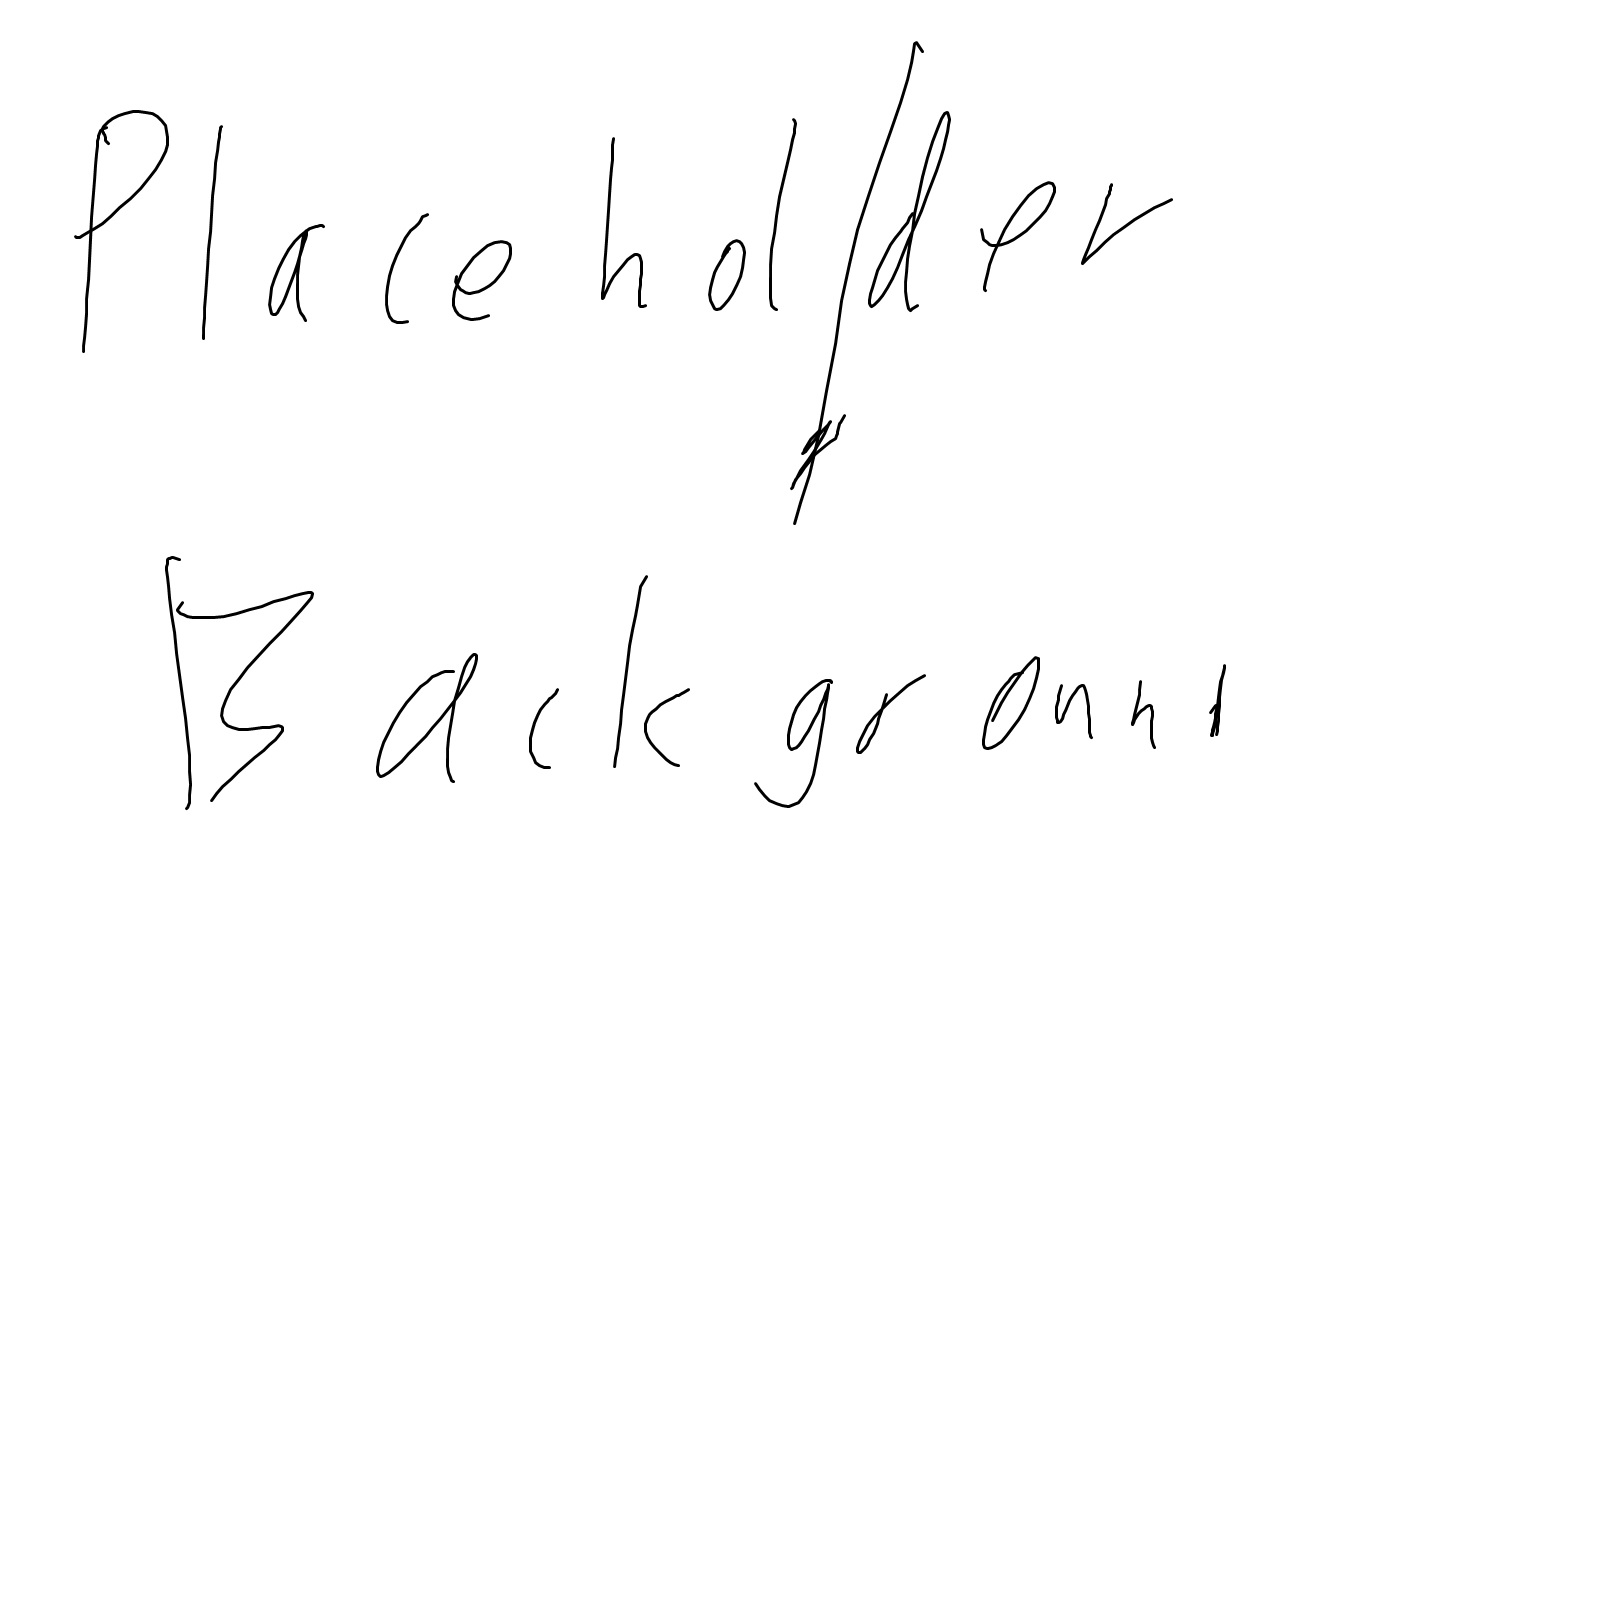 Placeholder
Background